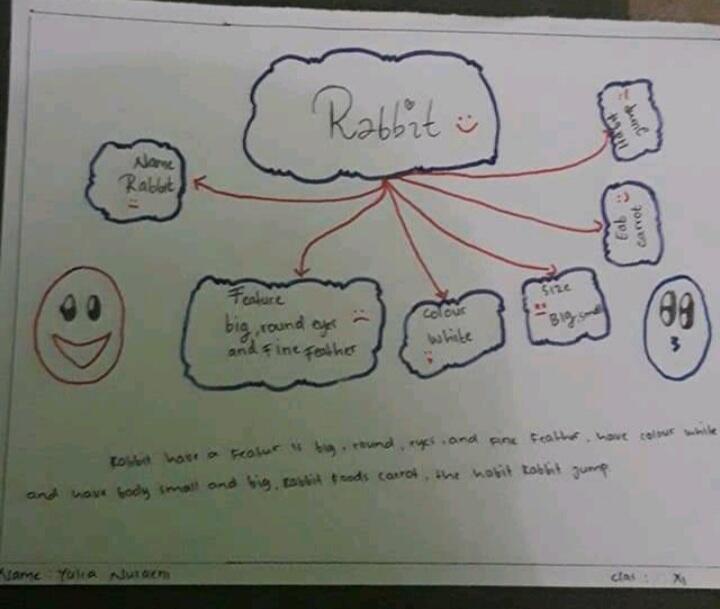 Rabbit
Name
Rabbit
Feature
big, round eyes
and Fine Feather
colour
White
Size
BIg, small
Eab
carrot
Habit
Jump
Rabbit have a Featur is big, round, eyes, and fine Feather, have colour white
and have body small and big, Rabbit Foods carrot, the habit Rabbit jump
Name : Yulia Nuraeni
clas : X1